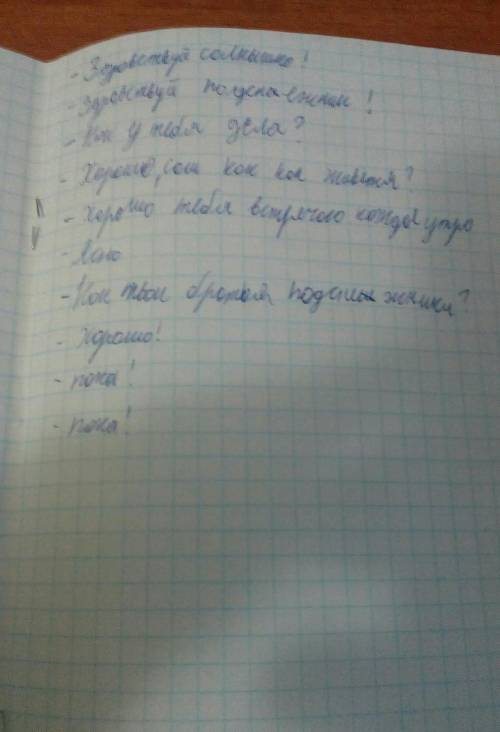 - Здравствуй солнышко!
- Здравствуй подснежник!
- Как у тебя дела?
- Хорошо, как живётся?
- Хорошо тебя встречаю каждое утро
- Ясно
- Как твои братья подснежники?
- Хорошо!
- пока!
- пока!